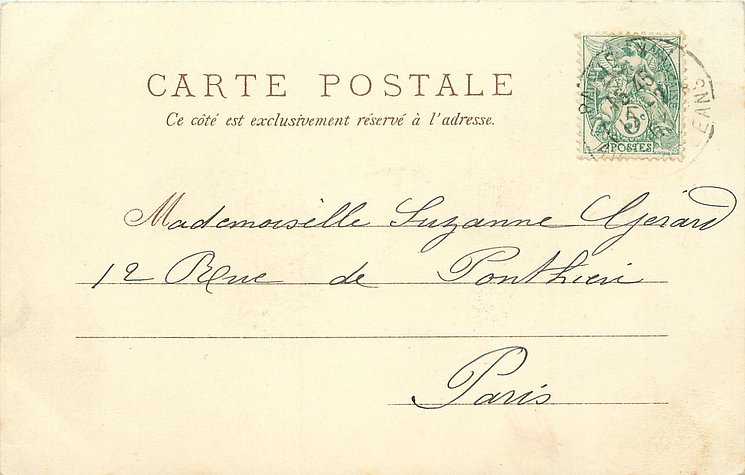 CARTE POSTALE
Ce côté est exclusivement réservé à l'adresse.
5
POSTES
Mademoiselle Suzanne Gérard
12 Rue de Ponthieu
Paris